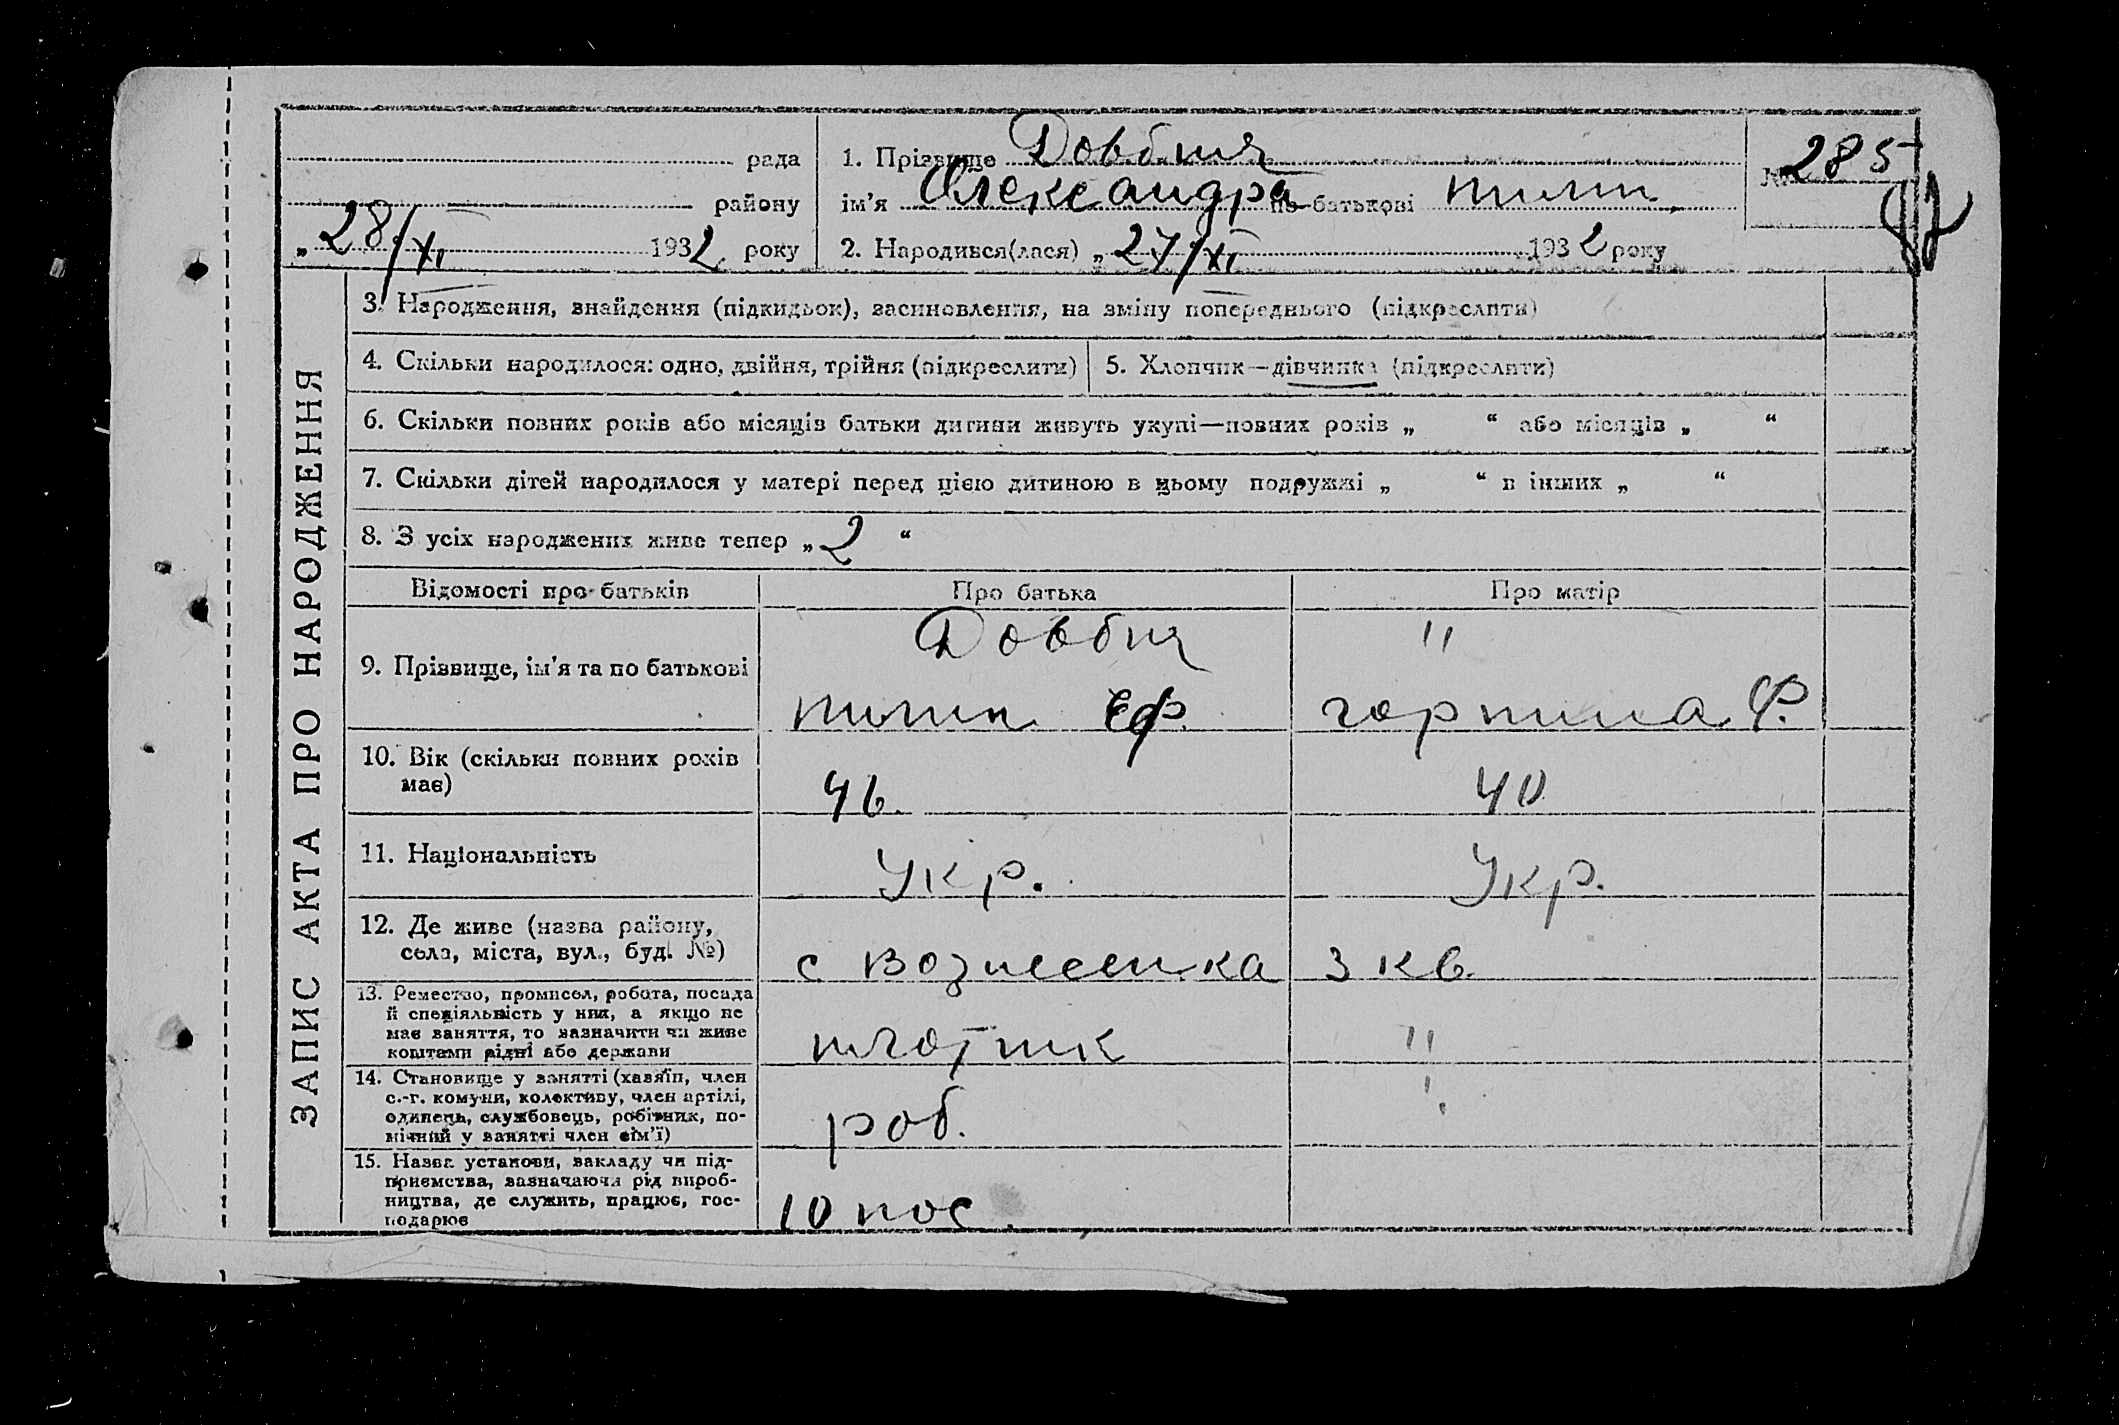 ЗАПИС АКТА ПРО НАРОДЖЕННЯ
рада
району
„ 28/XI 1932 року
1. Прізвище Довбня
ім'я Олександра по батькові Тим.
2. Народився(лася) „ 27/XI 1932 року
№ 285
3. Народження, знайдення (підкидьок), засиновлення, на зміну попереднього (підкреслити)
4. Скільки народилося: одно, двійня, трійня (підкреслити)
5. Хлопчик—дівчинка (підкреслити)
6. Скільки повних років або місяців батьки дитини живуть укупі—повних років „ “ або місяців „ “
7. Скільки дітей народилося у матері перед цією дитиною в цьому подружжі „ “ в інших „ “
8. З усіх народжених живе тепер „ 2 “
Відомості про батьків
Про батька
Про матір
9. Прізвище, ім'я та по батькові
Довбня
"
Єф.
горпина Ф.
10. Вік (скільки повних років
має)
46.
40
11. Національність
Укр.
Укр.
12. Де живе (назва району,
села, міста, вул., буд. №)
с Вознесенка
3 кв.
13. Ремество, промисел, робота, посада
й спеціяльність у них, а якщо не
має заняття, то зазначити чи живе
коштами рідні або держави
плотник
"
14. Становище у занятті (хазяїн, член
с.-г. комуни, колективу, член артілі,
одинець, службовець, робітник, по-
мічний у занятті член сім'ї)
роб.
15. Назва установи, закладу чи під-
приємства, зазначаючи рід вироб-
ництва, де служить, працює, гос-
подарює
10 пос.